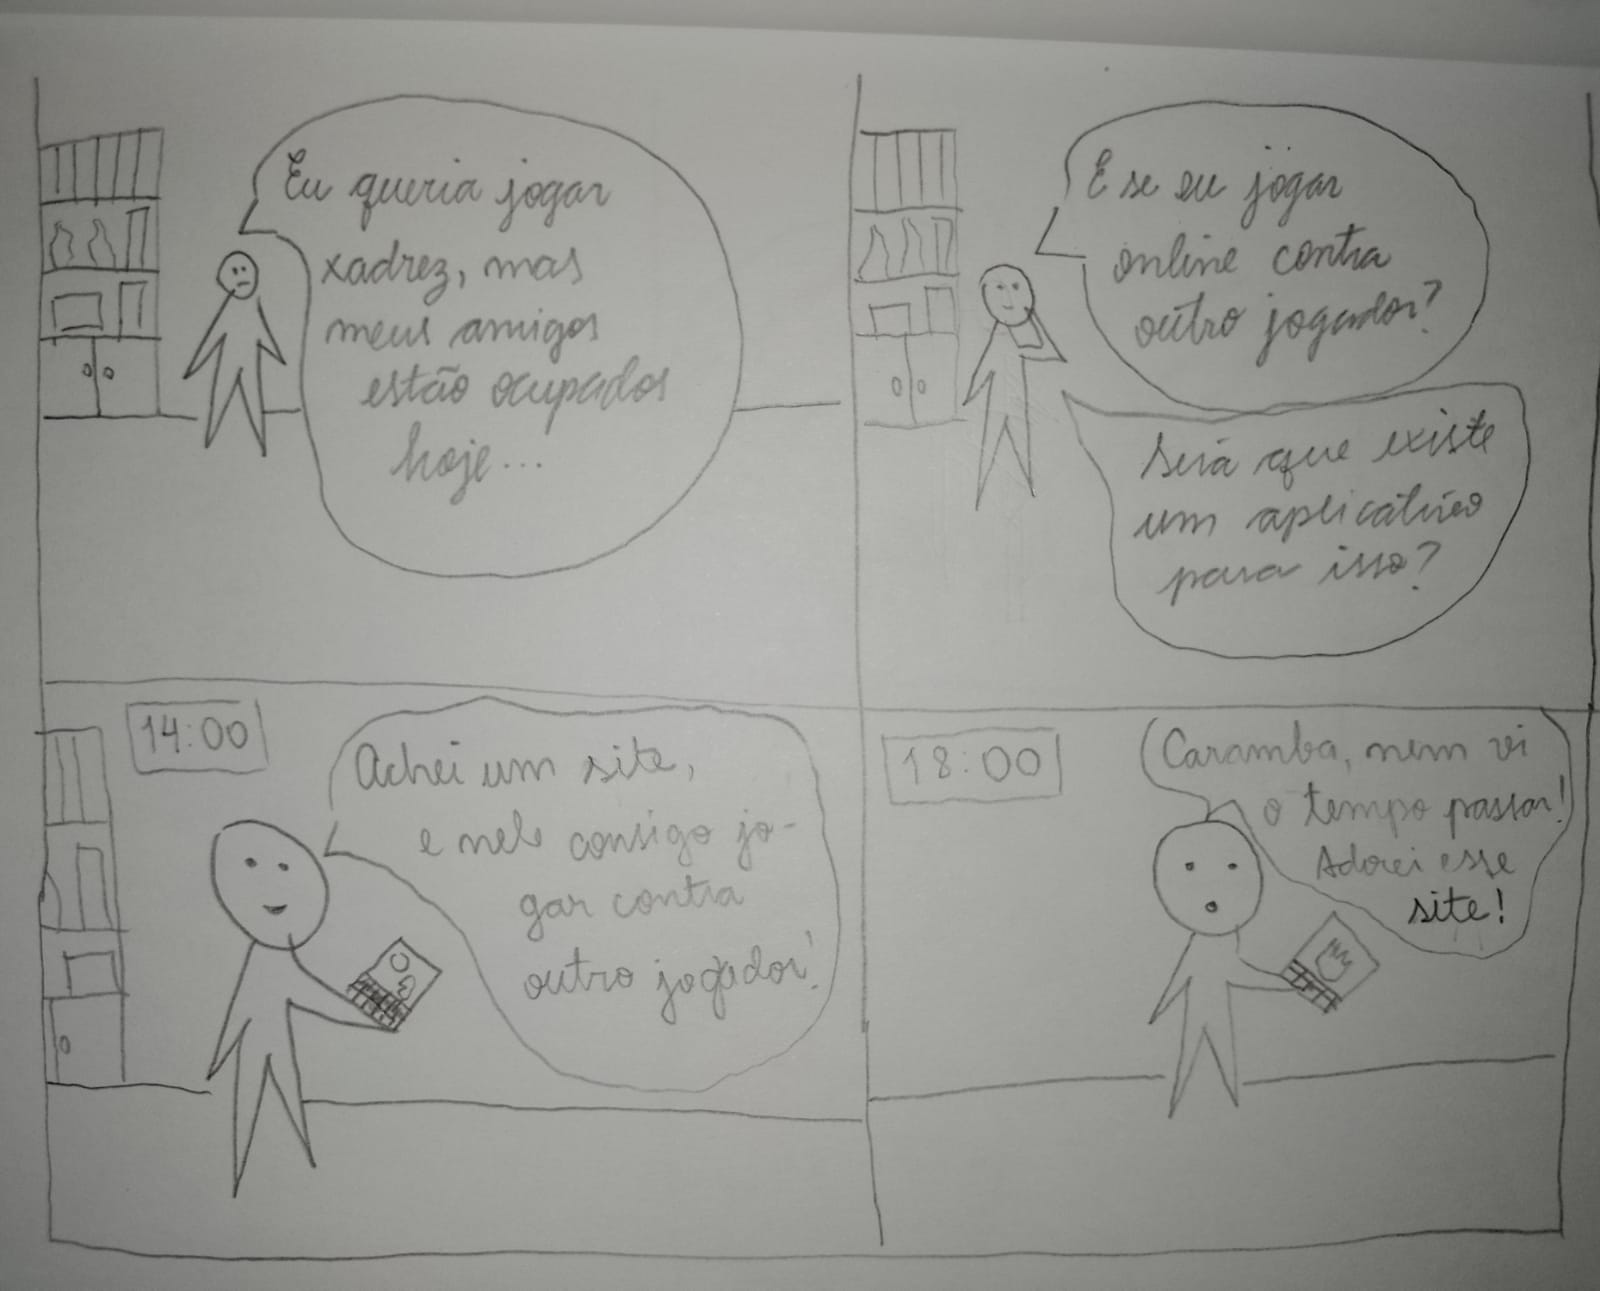 Eu queria jogar
xadrez, mas
meus amigos
estão ocupados
hoje...
E se eu jogar
online contra
outro jogador?
Será que existe
um aplicativo
para isso?
14:00
Achei um site,
e nele consigo jo-
gar contra
outro jogador!
18:00
Caramba, nem vi
o tempo passar!
Adorei esse
site!